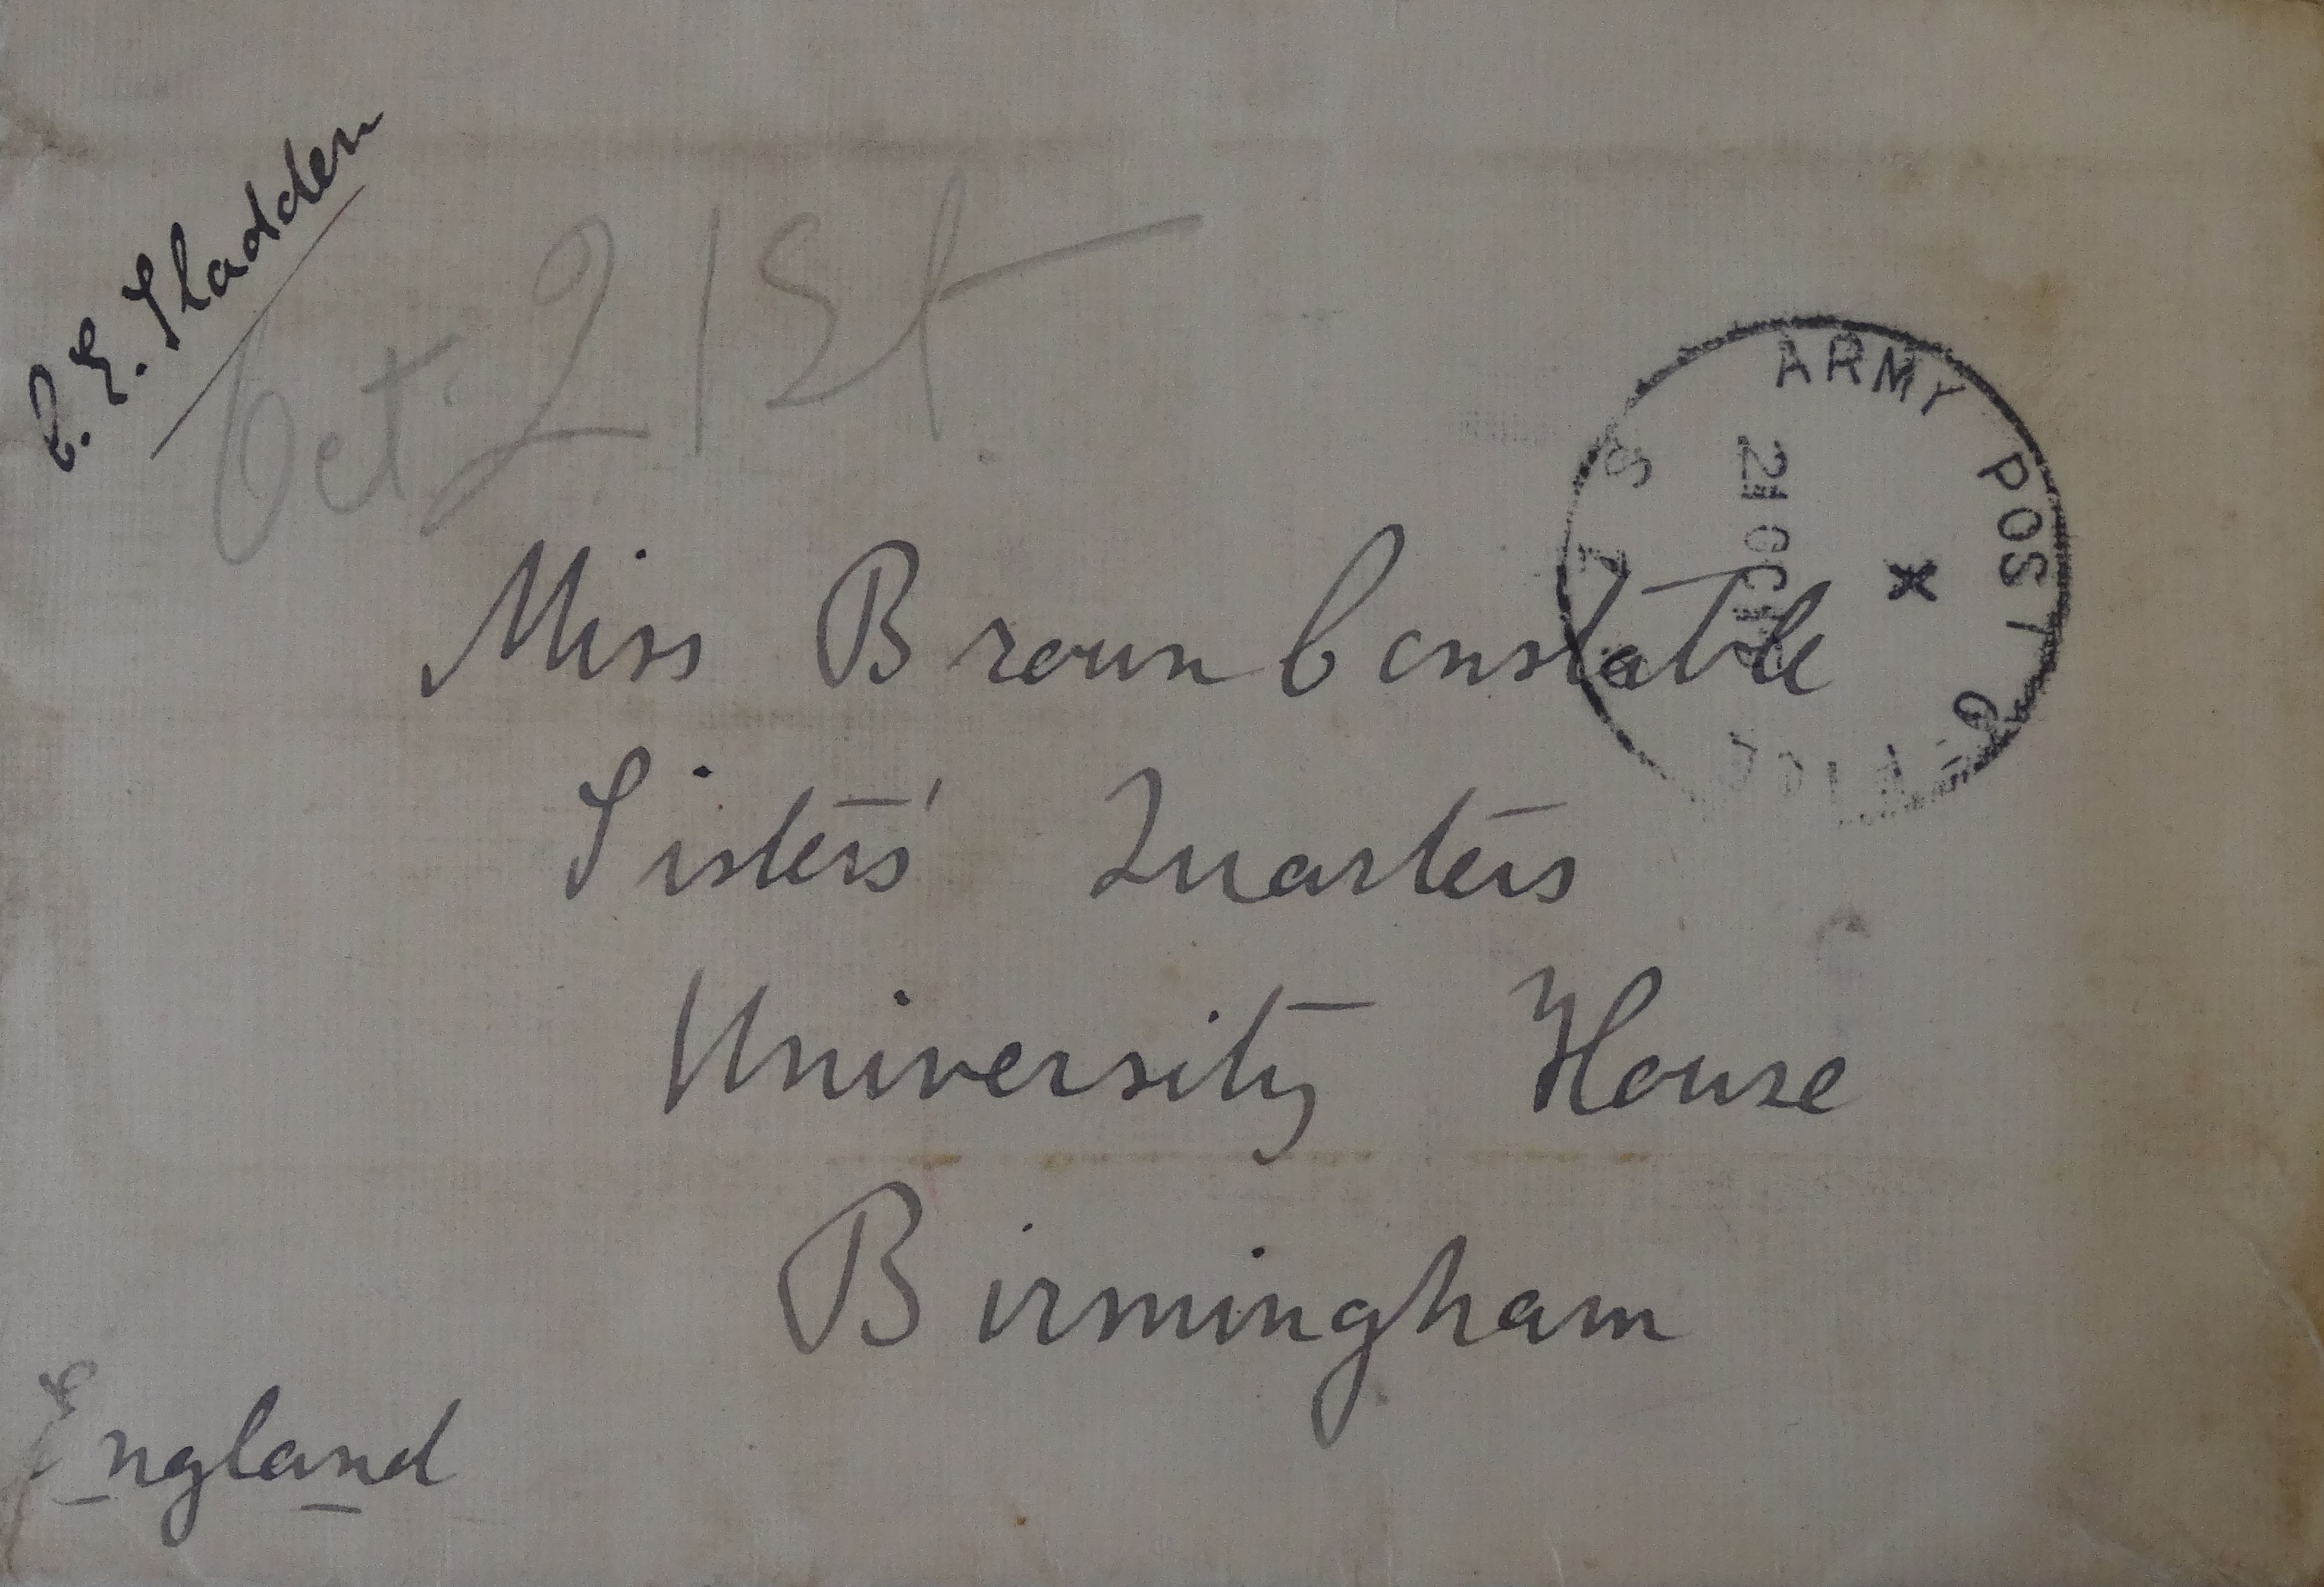 C. E. Sladden
Oct. 21st
ARMY POST OFFICE
S Z
X
21 OCT
Miss Broun Constable
Sisters' Quarters
University House
Birmingham
England